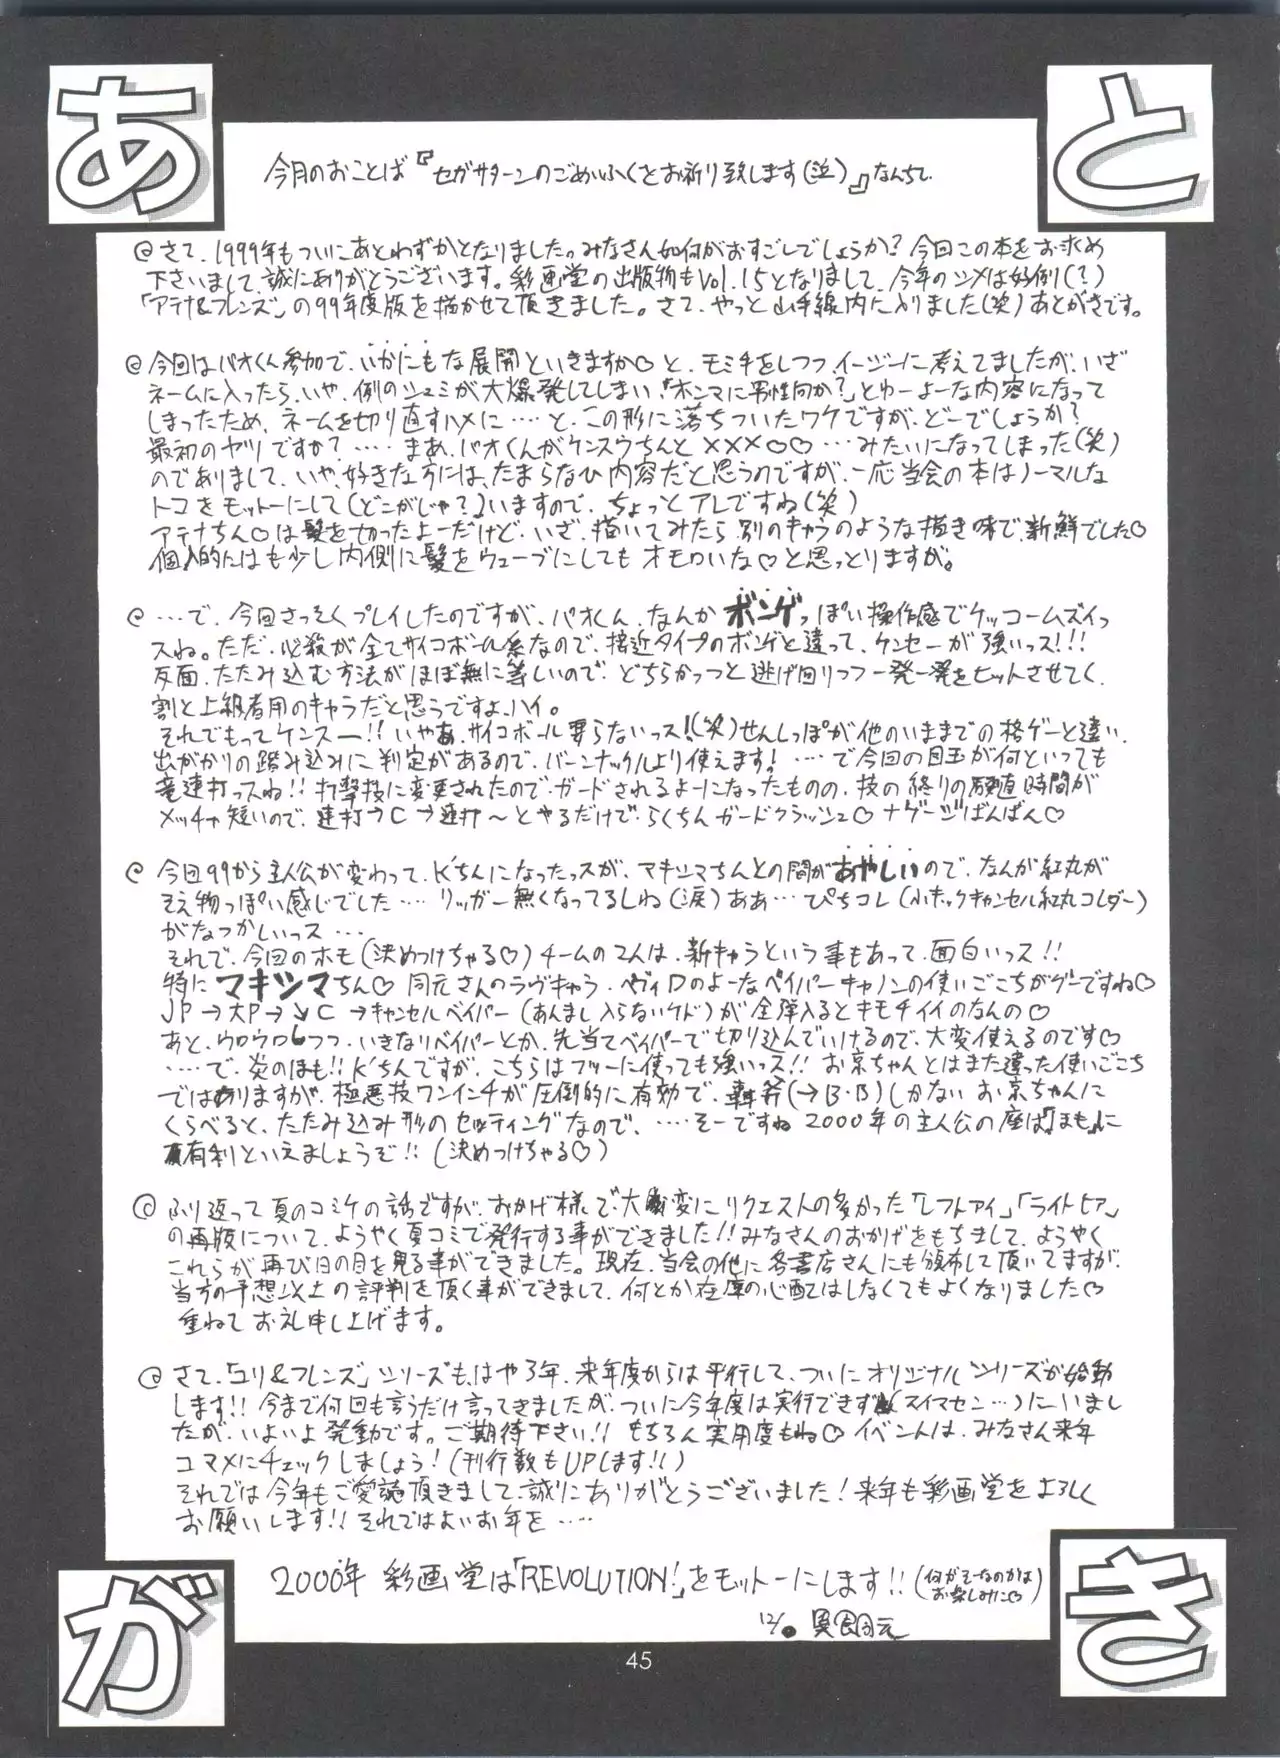 あとがき
今月のおことば『セガサターンのごめいふくをお祈り致します(泣)』なんちて。
@さて、1999年もついにあとわずかとなりました。みなさん如何がおすごしでしょうか?今回この本をお求め
下さいまして、誠にありがとうございます。彩画堂の出版物もVol.15となりまして、今年のシメは好例(?)
「アテナ&フレンズ」の99年度版を描かせて頂きました。さて、やっと山手線内に入りました(笑)あとがきです。
@今回はバオくん参加で、いかにもな展開といきますか♡と、モミ手をしつつイージーに考えてましたが、いざ
ネームに入ったら、いや、例のシュミが大爆発してしまい「ホンマに男性向か?」とゆーよーな内容になって
しまったため、ネームを切り直すハメに……と、この形に落ちついたワケですが、どーでしょうか?
最初のヤツですか?……まあ、バオくんがケンスウちんと×××♡♡…みたいになってしまった(笑)
のでありまして、いや、好きな方には、たまらなひ内容だと思うのですが、一応当会の本はノーマルな
トコをモットーにして(どこがじゃ?)いますので、ちょっとアレですね(笑)
アテナちん♡は髪を切ったよーだけど、いざ、描いてみたら別のキャラのような描き味で、新鮮でした♡
個人的にはも少し内側に髪をウェーブにしてもオモロいな♡と思っとりますが。
@…で、今回さっそくプレイしたのですが、バオくん、なんかボンゲっぽい操作感でケッコームズイっ
スね。ただ、必殺が全てサイコボール系なので、接近タイプのボンゲと違って、ケンセーが強いっス!!!
反面、たたみ込む方法がほぼ無に等しいので、どちらかっつと逃げ回りつつ一発一発をヒットさせてく、
割と上級者用のキャラだと思うですよ、ハイ。
それでもってケンスー!!いやぁ、サイコボール要らないっス!(笑)せんしっぽが他のいままでの格ゲーと違い、
出がかりの踏み込みに判定があるので、バーンナックルより使えます!……で今回の目玉が何といっても
竜連打っスね!!打撃技に変更されたので、ガードされるよーになったものの、技の終りの硬直時間が
メッチャ短いので、連打→C→連打〜とやるだけで、らくちんガードクラッシュ♡ナゲージばんばん♡
@今回99から主人公が変わって、K'ちんになったっスが、マキシマちんとの間があやしいので、なんか紅丸が
そえ物っぽい感じでした……リッガー無くなってるしね(涙)ああ…ぴちコレ(小キックキャンセル紅丸コレダー)
がなつかしいっス…
それで、今回のホモ(決めつけちゃる♡)チームの2人は、新キャラという事もあって、面白いっス!!
特にマキシマちん♡ 同元さんのラヴキャラ・ヘヴィDのよーなベイパーキャノンの使いごこちがグーですね♡
JP→大P→↘C→キャンセルベイパー(あんまし入らないケド)が全弾入るとキモチイイのなんの♡
あと、ウロウロしつつ、いきなりベイパーとか、先当てベイパーで切り込んでいけるので、大変使えるのです♡
……で、炎のほも!!K'ちんですが、こちらはフツーに使っても強いっス!!お京ちゃんとはまた違った使いごこち
ではありますが、極悪技ワンインチが圧倒的に有効で、轟斧(→B・B)しかないお京ちゃんに
くらべると、たたみ込み形のセッティングなので、……そーですね2000年の主人公の座は『ほも』に
有利といえましょうぞ!!(決めつけちゃる♡)
@ふり返って夏のコミケの話ですが、おかげ様で大変にリクエストの多かった「レフトアイ」「ライトヒア」
の再版について、ようやく夏コミで発行する事ができました!!みなさんのおかげをもちまして、ようやく
これらが再び日の目を見る事ができました。現在、当会の他に各書店さんにも頒布して頂いてますが、
当方の予想以上の評判を頂く事ができまして、何とか在庫の心配はしなくてもよくなりました♡
重ねてお礼申し上げます。
@さて、「ユリ&フレンズ」シリーズも、はや3年、来年度からは平行して、ついにオリジナルシリーズが始動
します!!今まで何回も言うだけ言ってきましたが、ついに今年度は実行できず(スイマセン…)にいまし
たが、いよいよ発動です。ご期待下さい!!もちろん実用度もね♡イベントは、みなさん来年
コマメにチェックしましょう!(刊行数もUPします!!)
それでは今年もご愛読頂きまして、誠にありがとうございました!来年も彩画堂をよろしく
お願いします!!それではよいお年を……
2000年 彩画堂は「REVOLUTION!」をモットーにします!!(何がそーなのかはお楽しみに♡)
45